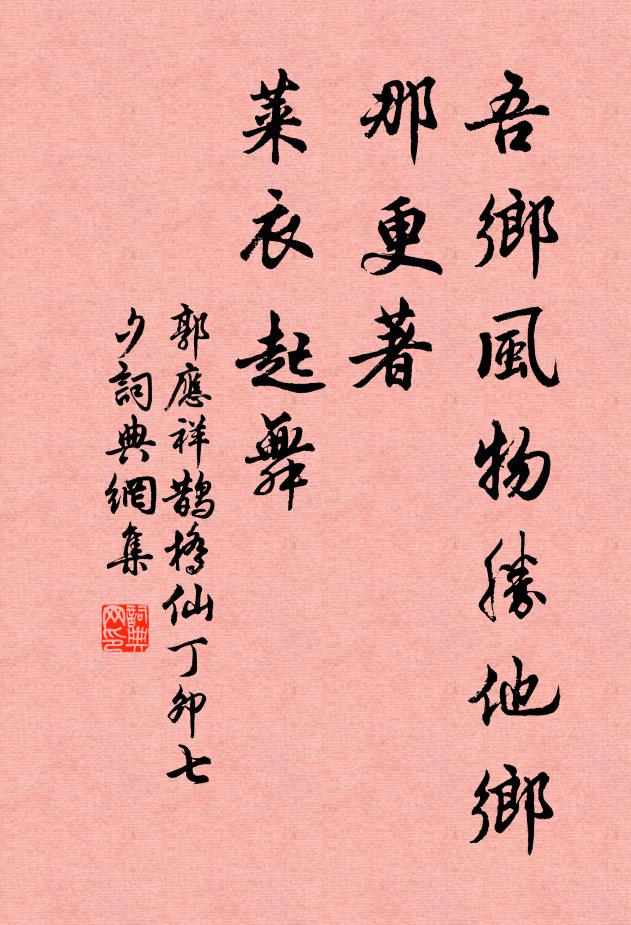 吾鄉風物勝他鄉
那更著
萊衣起舞
郭應祥鵲橋仙丁卯七
夕詞典網集
詞典网印